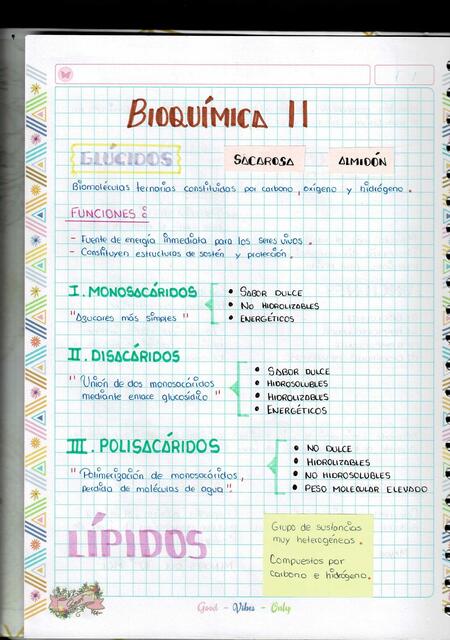 BIOQUÍMICA II
GLÚCIDOS
SACAROSA
ALMIDÓN
Biomoléculas ternarias constituidas por carbono, oxígeno y hidrógeno.
FUNCIONES:
- Fuente de energía inmediata para los seres vivos.
- Constituyen estructuras de sostén y protección.
I. MONOSACÁRIDOS
"Azucares más simples"
• SABOR DULCE
• NO HIDROLIZABLES
• ENERGÉTICOS
II. DISACÁRIDOS
"Unión de dos monosacáridos
mediante enlace glucosídico"
• SABOR DULCE
• HIDROSOLUBLES
• HIDROLIZABLES
• ENERGÉTICOS
III. POLISACÁRIDOS
"Polimerización de monosacáridos,
perdida de moléculas de agua"
• NO DULCE
• HIDROLIZABLES
• NO HIDROSOLUBLES
• PESO MOLECULAR ELEVADO
LÍPIDOS
Grupo de sustancias
muy heterogéneas.
Compuestos por
carbono e hidrógeno.
Good - Vibes - Only